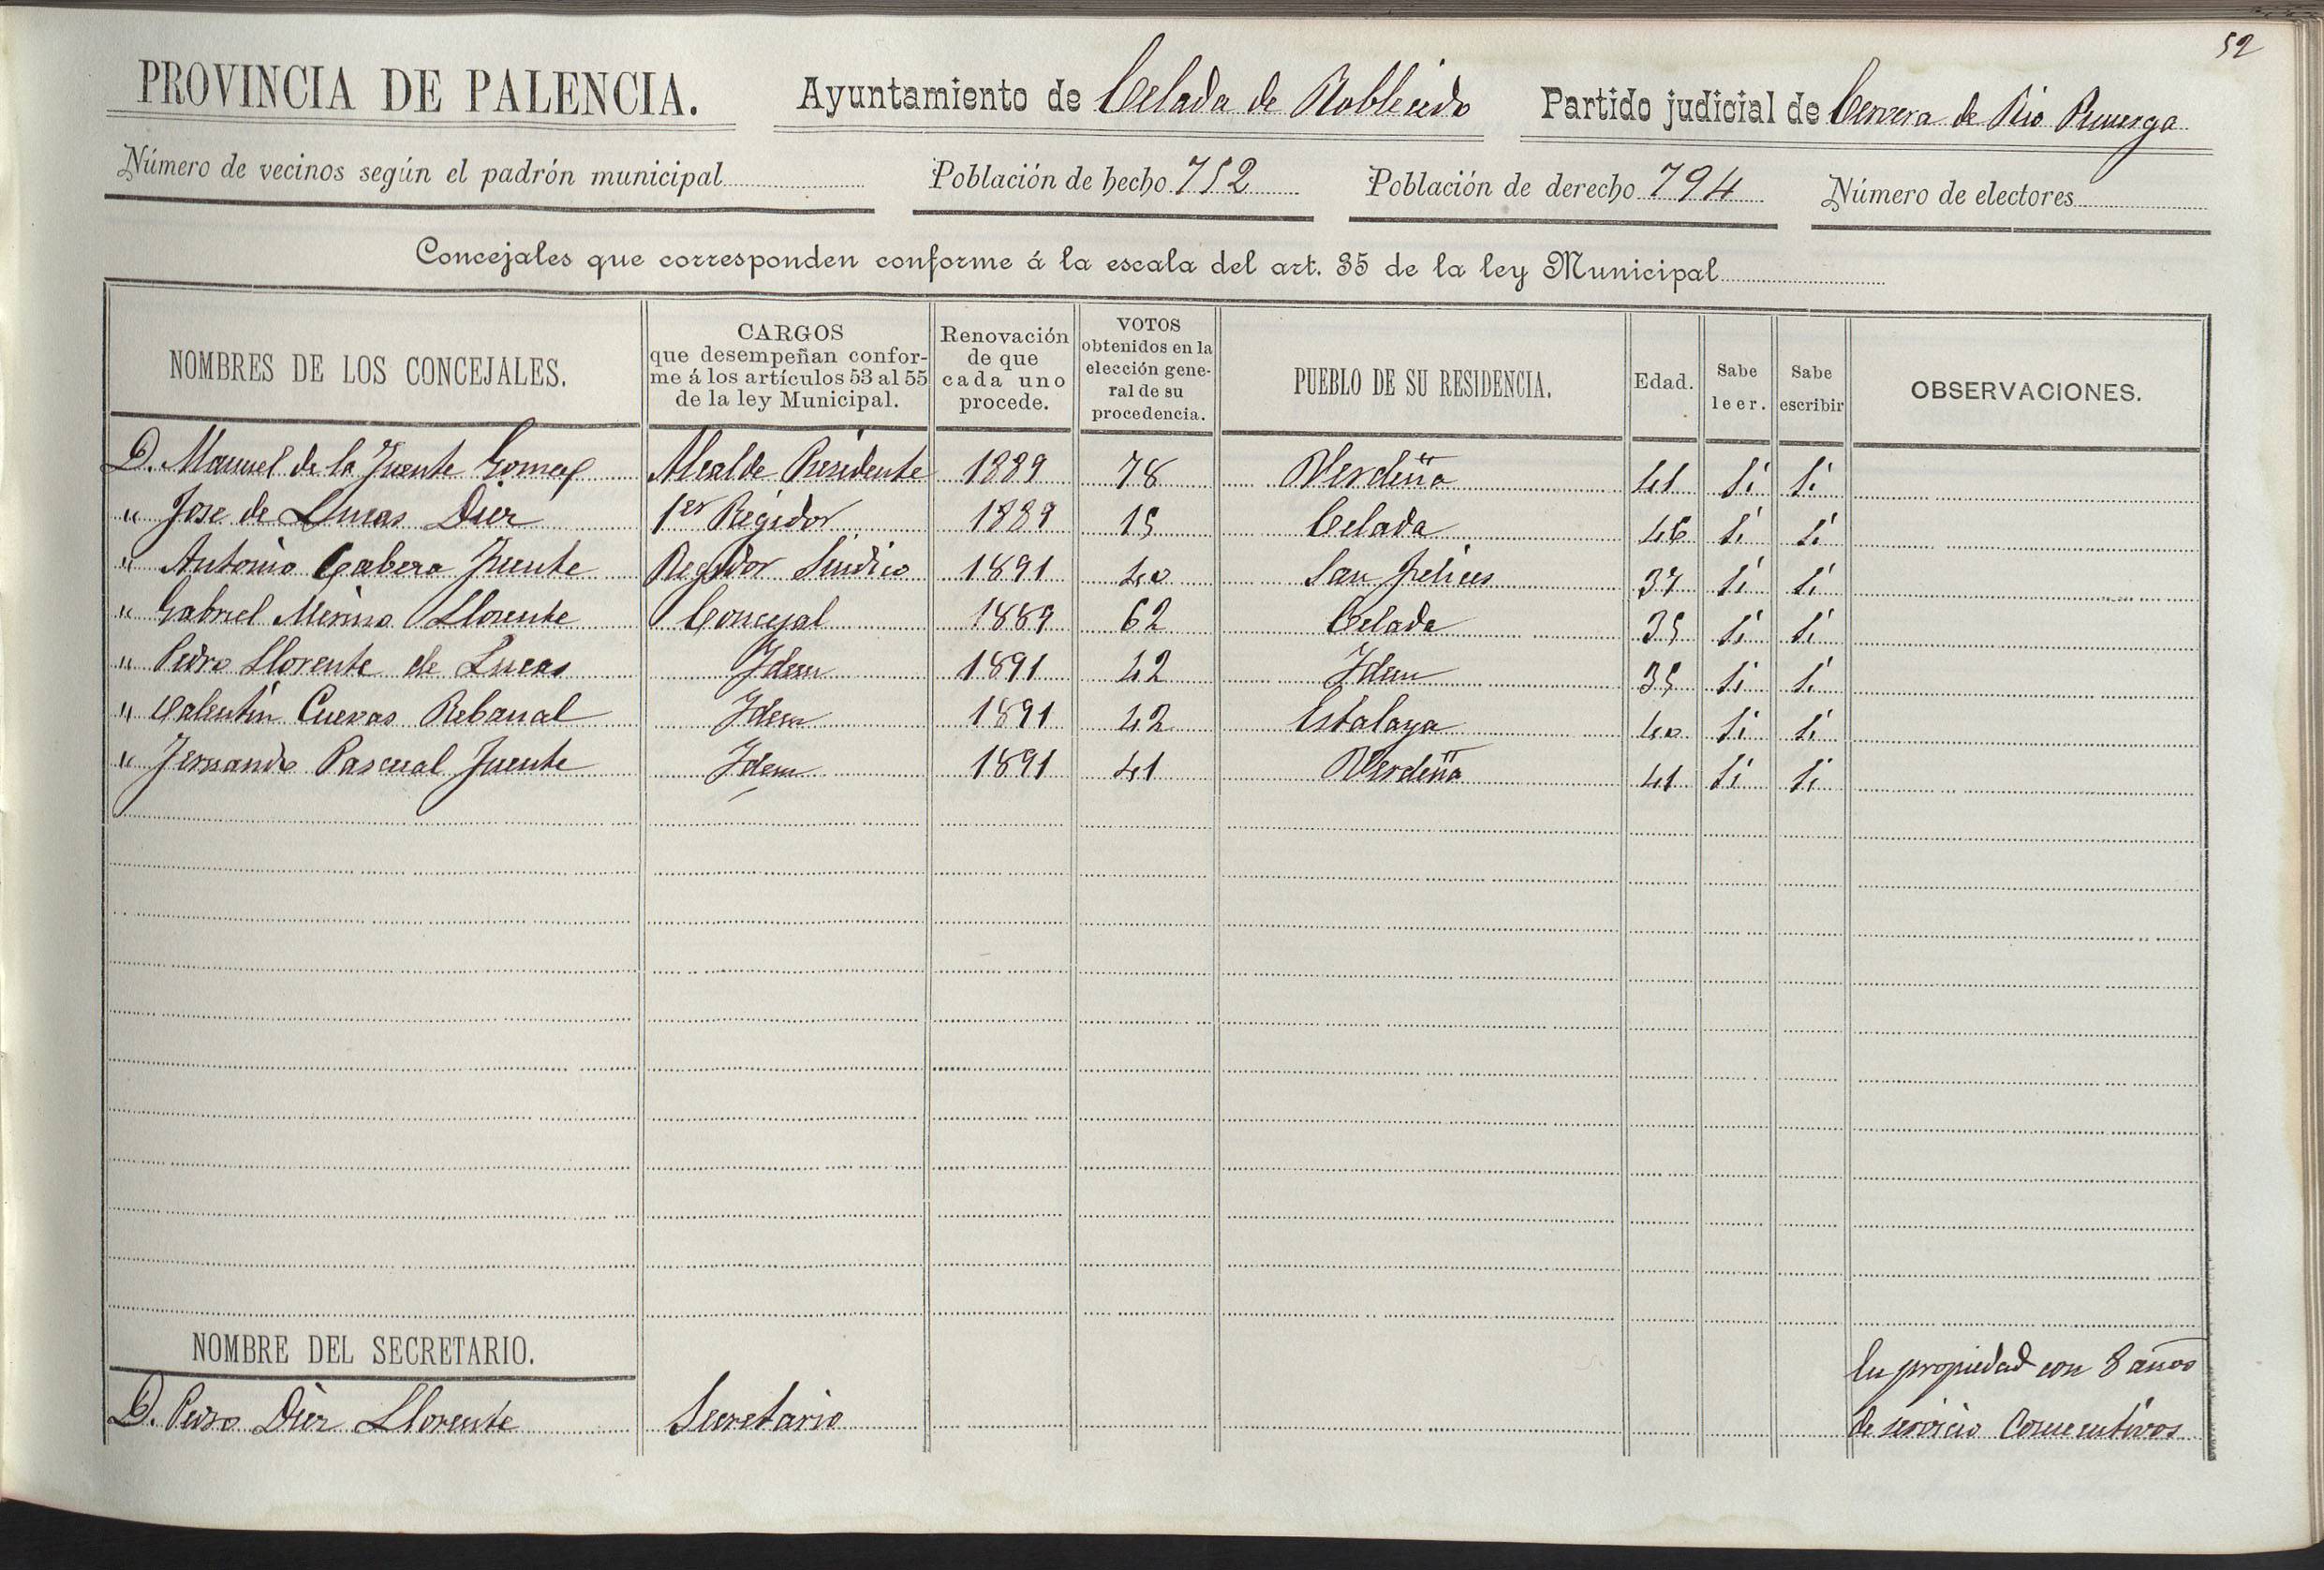 52
PROVINCIA DE PALENCIA. Ayuntamiento de Celada de Roblecedo Partido judicial de Cervera de Rio Pisuerga
Número de vecinos según el padrón municipal Población de hecho 752 Población de derecho 794 Número de electores
Concejales que corresponden conforme á la escala del art. 35 de la ley Municipal
NOMBRES DE LOS CONCEJALES. CARGOS que desempeñan confor- me á los artículos 53 al 55 de la ley Municipal. Renovación de que cada uno procede. VOTOS obtenidos en la elección gene- ral de su procedencia. PUEBLO DE SU RESIDENCIA. Edad. Sabe leer. Sabe escribir OBSERVACIONES.
D. Manuel de la Fuente Gomez Alcalde Presidente 1889 78 Verdeña 41 Si Si
" Jose de Lucas Diez 1er Regidor 1889 15 Celada 46 Si Si
" Antonio Cabera Fuente Regidor Sindico 1891 40 San Felices 37 Si Si
" Gabriel Merino Llorente Concejal 1889 62 Celada 35 Si Si
" Pedro Llorente de Lucas Idem 1891 42 Idem 35 Si Si
" Valentin Cuevas Rebanal Idem 1891 42 Estalaya 40 Si Si
" Fernando Pascual Fuente Idem 1891 41 Verdeña 41 Si Si
NOMBRE DEL SECRETARIO. En propiedad con 8 años
D. Pedro Diez Llorente Secretario de servicio consecutivos